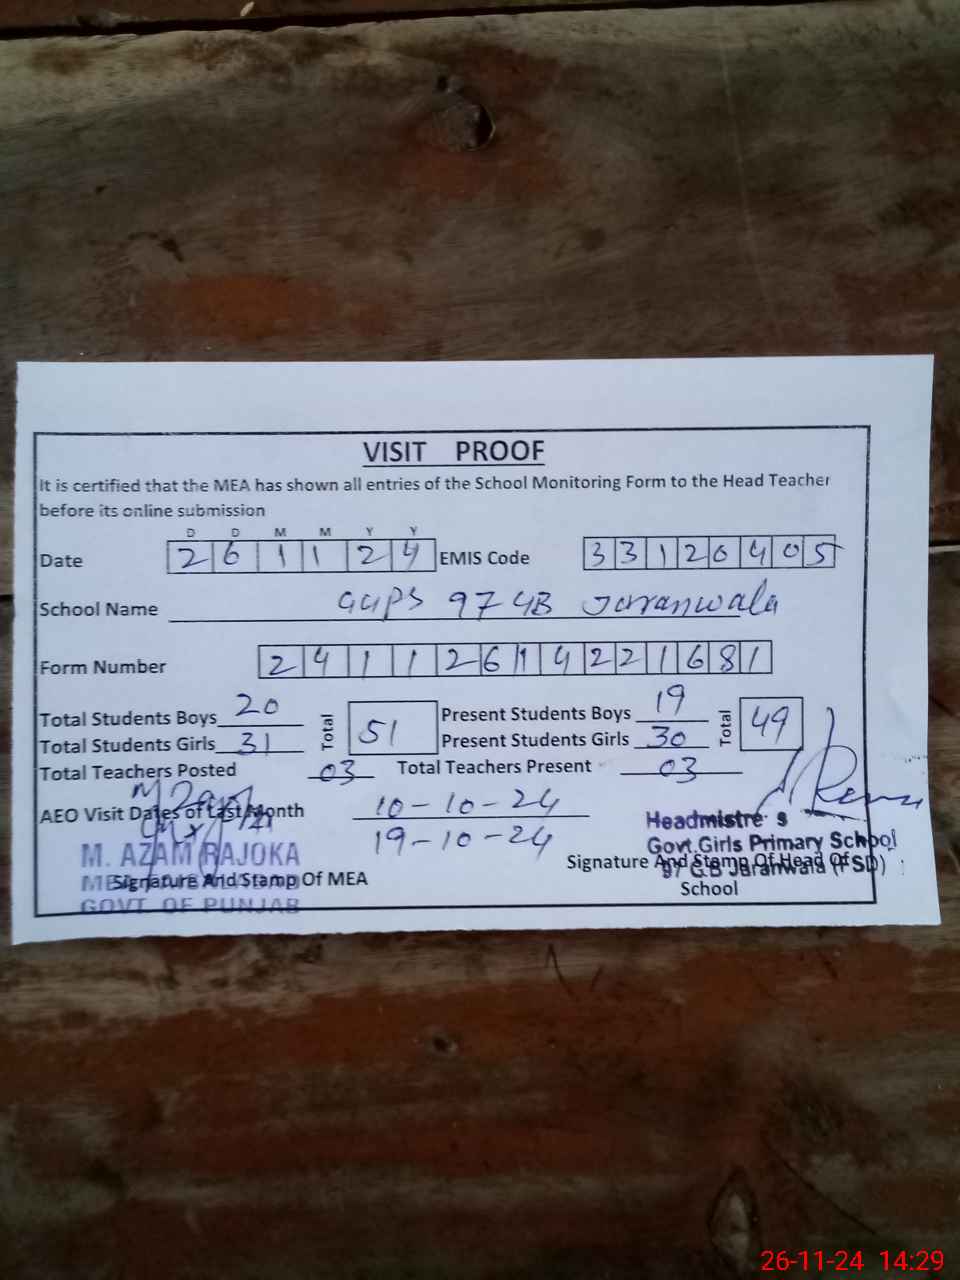 VISIT PROOF
It is certified that the MEA has shown all entries of the School Monitoring Form to the Head Teacher
before its online submission
D D M M Y Y
Date 2 6 1 1 2 4 EMIS Code 3 3 1 2 0 4 0 5
School Name GGPS 97 GB Jaranwala
Form Number 2 4 1 1 2 6 1 4 2 2 1 6 8 1
Total Students Boys 20 Total 51 Present Students Boys 19 Total 49
Total Students Girls 31 Present Students Girls 30
Total Teachers Posted 03 Total Teachers Present 03
AEO Visit Dates of Last Month 10-10-24
19-10-24
M. AZAM RAJOKA
GOVT OF PUNJAB
Signature And Stamp Of MEA
Headmistre s
Govt. Girls Primary School
97 G.B Jaranwala (FSD)
Signature And Stamp Of Head Of
School
26-11-24 14:29